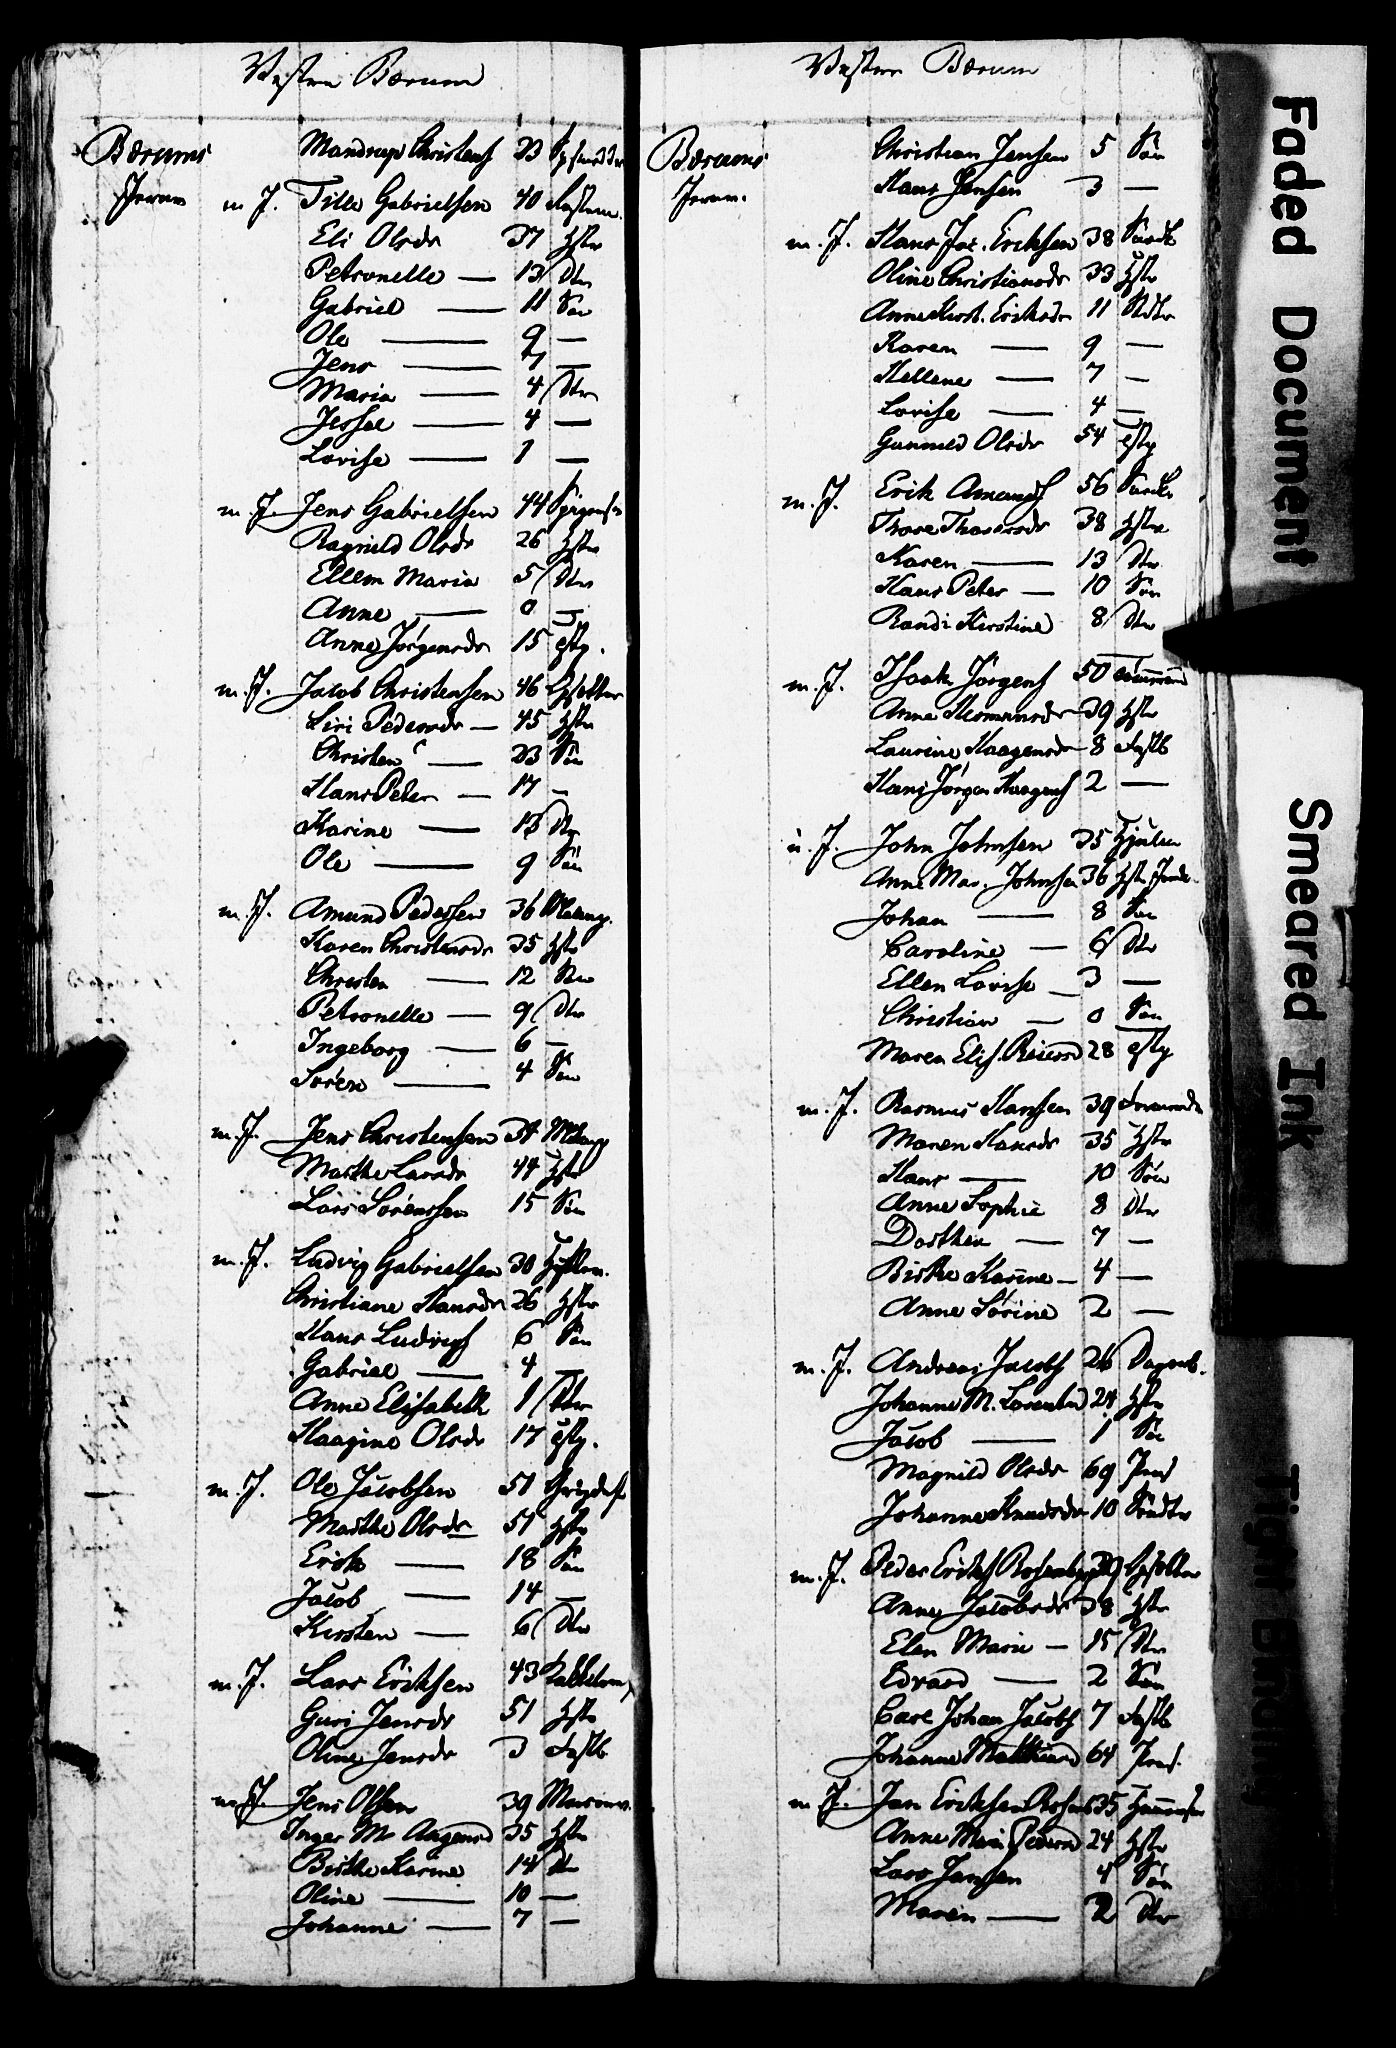 Vestre Bærum
Bærums
Mandrup Christens 23
m. J. Tille Gabrielsen 40
Eli Olsdr 37 Hstr
Petronelle — 13 Dtr
Gabriel — 11 Søn
Ole — 9 —
Jens — 7 —
Maria — 4 Dtr
Jessel — 4 —
Lovise — 1 —
m. J. Jens Gabrielsen 44
Ragnild Olsdr 26 Hstr
Ellem Maria 5 Dtr
Anne — 0 —
Anne Jørgensdr 15 Tjstp.
m. J. Jacob Christensen 46
Siri Pedersdr — 45 Hstr
Christen — 23 Søn
Hans Peter — 17 —
Karine — 13 Dtr
Ole — 9 Søn
m. J. Amund Pedersen 36
Karen Christensdr 35 Hstr
Christen — 12 Søn
Petronelle — 9 Dtr
Ingeborg — 6 —
Søren — 4 Søn
m. J. Jens Christensen 34
Marthe Larsdr 44 Hstr
Lars Sørenssen 15 Søn
m. J. Ludvig Gabrielsen 30
Christiane Hansdr 26 Hstr
Hans Ludvigs 6 Søn
Gabriel — 4 —
Anne Elisabeth 1 Dtr
Haagine Olsdr 17 Tjstp.
m. J. Ole Jacobsen 51
Marthe Olsdr 51 Hstr
Erik — 18 Søn
Jacob — 14 —
Kirsten — 6 Dtr
m. J. Lars Eriksen 43
Guri Jensdr 51 Hstr
Oline Jensdr 3 Fostb
m. J. Jens Olsen 39
Inger M. Aagensd 35 Hstr
Birthe Karine 14 Dtr
Oline — 10 —
Johanne — 7 —
Vestre Bærum
Bærums
Christian Jensen 5 Søn
Hans Jensen 3 —
m. J. Hans Jac. Eriksen 38
Oline Christiansdr 33 Hstr
Anne Kirst. Eriksdr 11
Karen — 9 —
Hellene — 7 —
Lovise — 4 —
Gunnild Olsdr 54 Tjstp
m. J. Erik Amunds 56
Thore Thoresdr 38 Hstr
Karen — 13 Dtr
Hans Peter — 10 Søn
Randi Kirstine 8 Dtr
m. J. Isaak Jørgens 50
Anne Hermansdr 39 Hstr
Laurine Haagensdr 8 Fostb
Hans Jørgen Haagens 2 —
u. J. John Johnsen 35
Anne Mar. Johnsen 36 Hstr
Johan — 8 Søn
Caroline — 6 Dtr
Ellen Lovise — 3 —
Christian — 0 Søn
Maren Elis. 28 Tjstp
m. J. Rasmus Hanssen 39
Maren Hansdr 35 Hstr
Hans — 10 Søn
Anne Sophie 8 Dtr
Dorthea — 7 —
Birthe Karine — 4 —
Anne Sørine 2 —
m. J. Andreas Jacobs 26
Johanne M. Larsensd 24 Hstr
Jacob — 1 Søn
Magnild Olsdr 69
Johanne Knudsdr 10
m. J. Peder Eriks
Anne Jacobsdr 38 Hstr
Elen Marie — 15 Dtr
Edvard — 2 Søn
Carl Johan Jacobs 7 Fostb
Johanne 64
m. J. Jan Eriksen 35
Anne Mari Pedersd 24 Hstr
Lars Jansen 4 Søn
Maren — 2 Dtr
Faded Document
Smeared Ink
Tight Binding